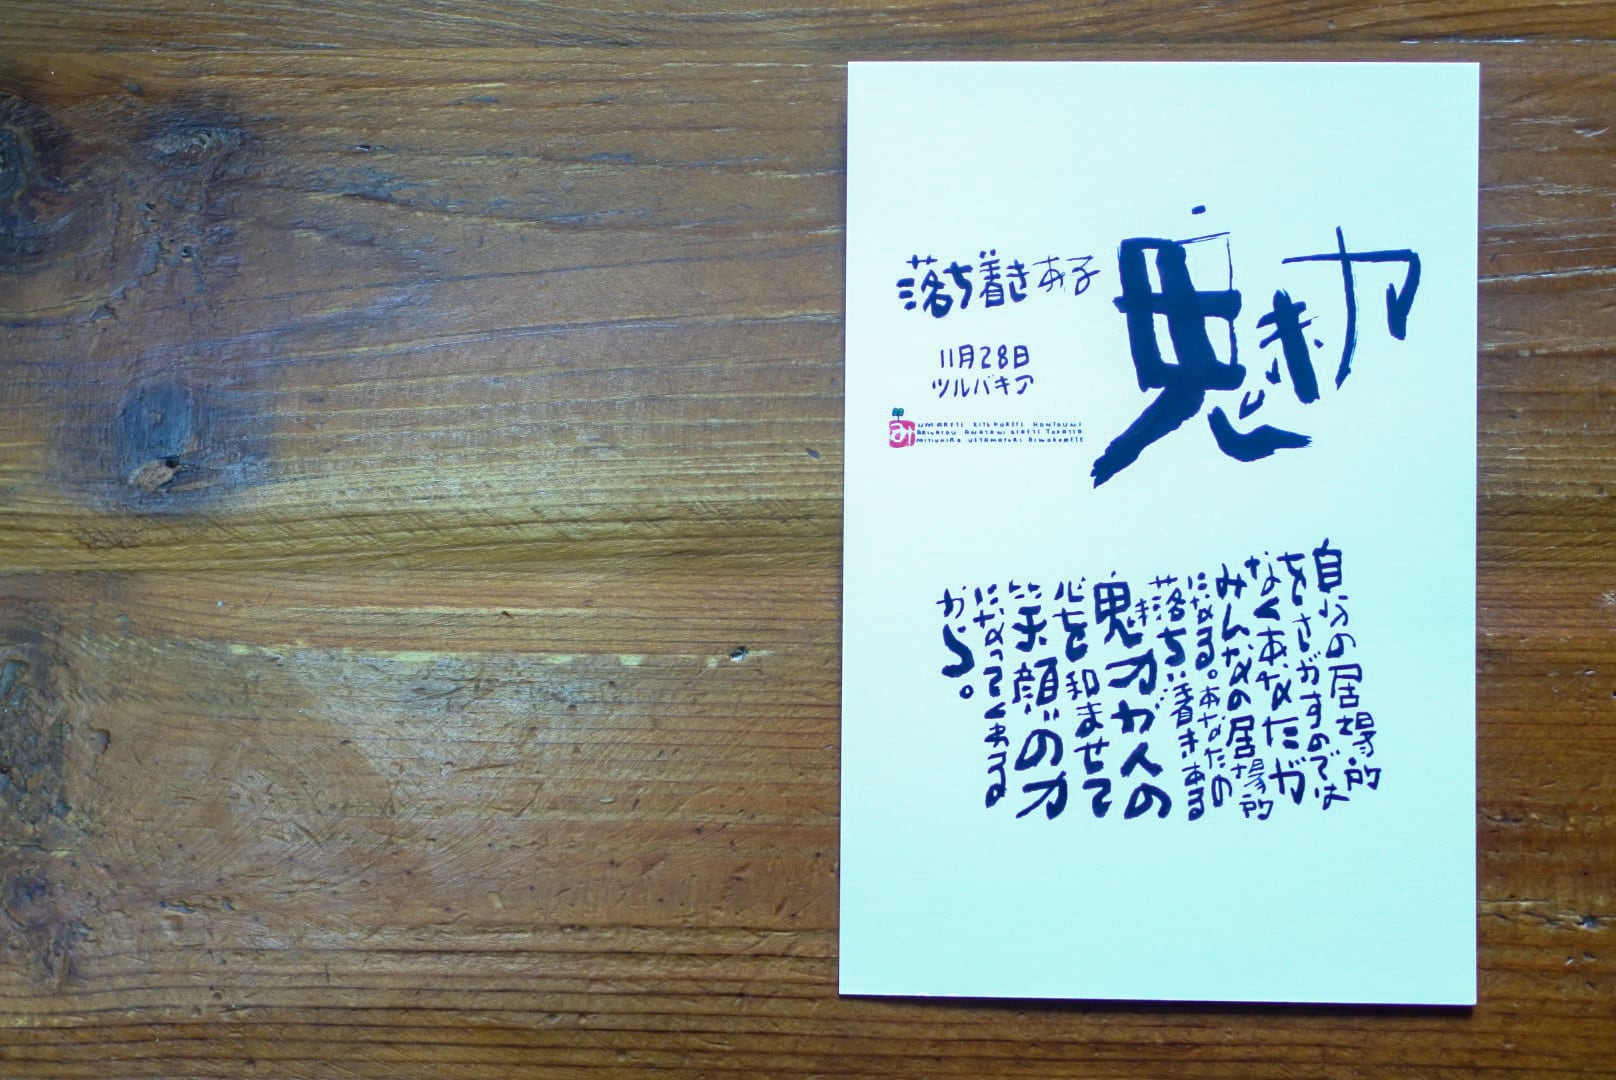 魅力
落ち着きある
11月28日
ツルバキア
み
UMARETE KITEKURETE HONTOUNI
ARIGATOU ANATANI DEAETE
MITUHIRO UETAMATUKI AIWOKOMETE
自分の居場所
をさがすのでは
なくあなたが
みんなの居場所
になる。あなたの
落ち着きある
魅力が人の
心を和ませて
笑顔の力
になってくれる
から。